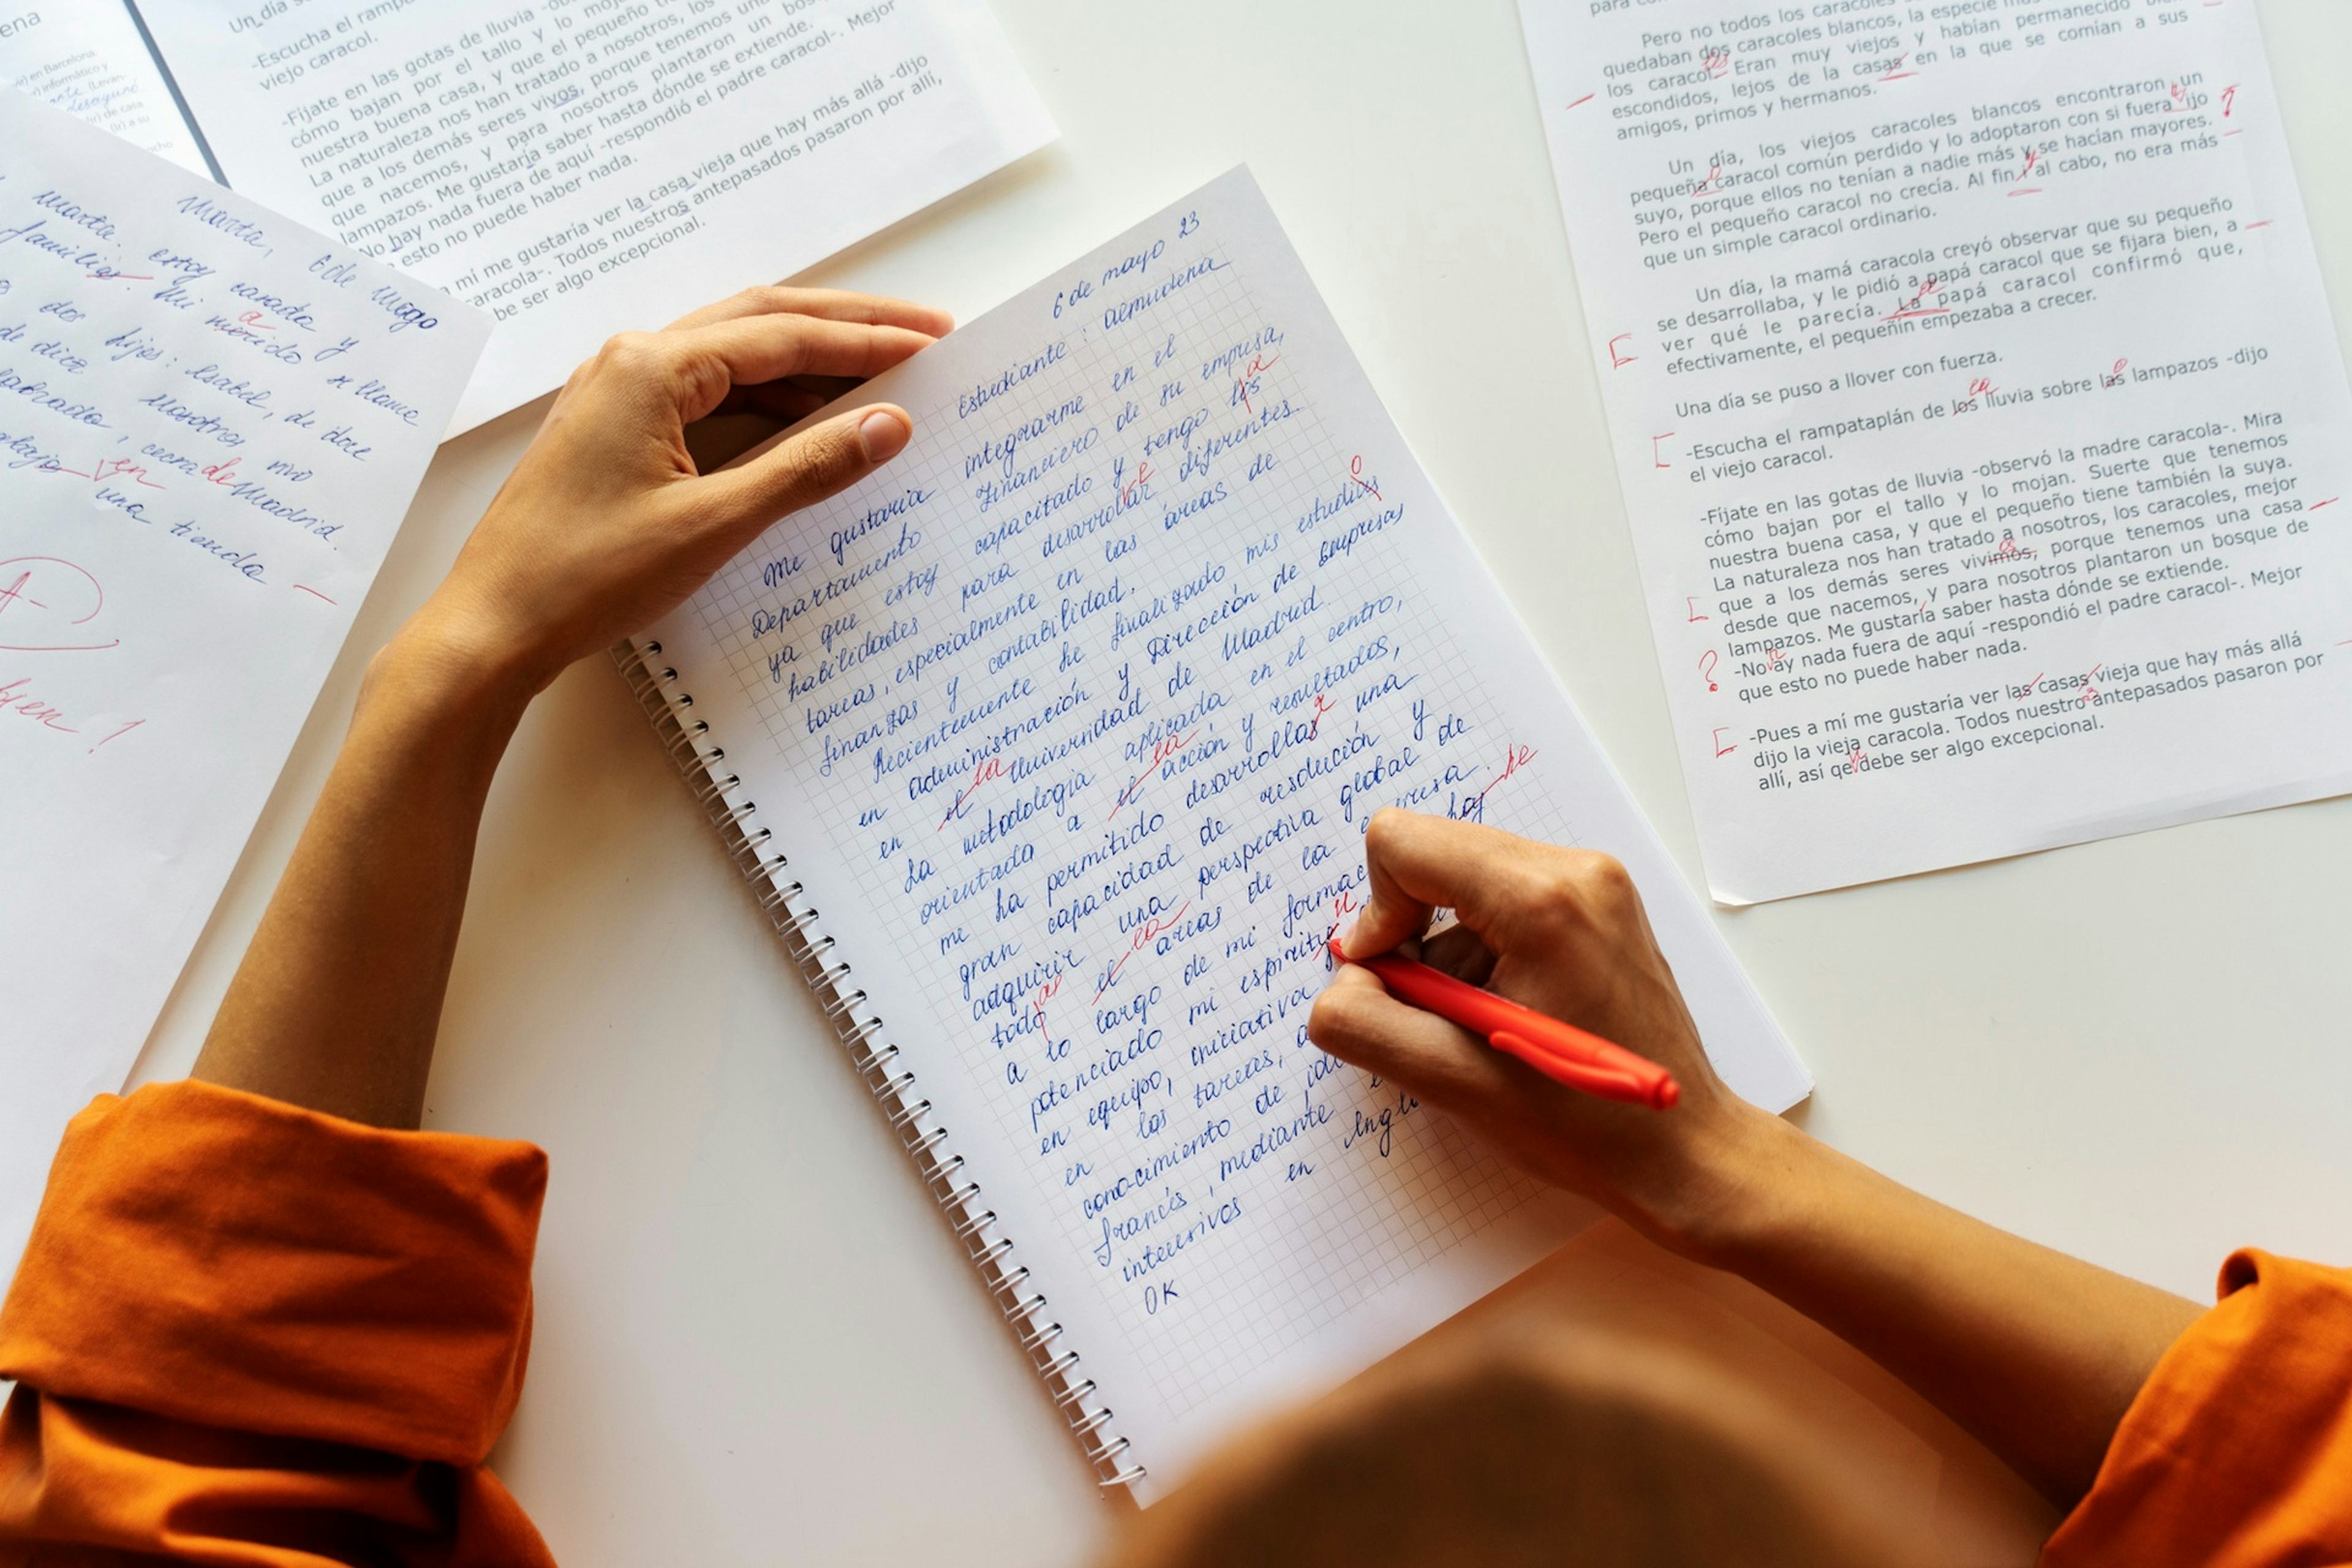 Un día s
-Escucha el rampa
viejo caracol.
-Fíjate en las gotas de lluvia -ob
cómo bajan por el tallo y lo moja
nuestra buena casa, y que el pequeño tie
La naturaleza nos han tratado a nosotros, los
que a los demás seres vivos, porque tenemos una
que nacemos, y para nosotros plantaron un bos
lampazos. Me gustaría saber hasta dónde se extiende.
No hay nada fuera de aquí -respondió el padre caracol-. Mejor
esto no puede haber nada.
a mí me gustaría ver la casa vieja que hay más allá -dijo
caracola-. Todos nuestros antepasados pasaron por allí,
be ser algo excepcional.
en Barcelona.
informático y
de casa
(ir) a su
Marta, 6 de mayo
Marta. estoy casada y
familiar. Mi morido a se llama
dos hijos: Isabel, de doce
de diez Nosotros vivo
cecra de Madrid.
en una tienda
A-
bien!
6 de mayo 23
Estudiante: Almudena
Me gustaria integrarme en el
Departamento Financiero de su empresa,
ya que estoy capacitado y tengo los a
habilidades para desarrollar diferentes
tareas, especialmente en las áreas de
finanzas y contabilidad.
Recientemente he finalizado mis estudias o
en administración y Dirección de Empresas
en el la Universidad de Madrid.
La metodologia aplicada en el centro,
orientada a el la acción y resultados,
me ha permitido desarrollas r una
gran capacidad de resolución y
adquirir una perspectiva global de
todo as el la areas de la empresa.
a lo largo de mi formac hay he
potenciado mi espiritu
en equipo, iniciativa
en las tareas, a
conocimiento de idi
francés, mediante
intensivos en Ingl
OK
Pero no todos los caracoles
quedaban dos caracoles blancos, la especie más
los caracol. Eran muy viejos y habían permanecido
escondidos, lejos de la casas en la que se comían a sus
amigos, primos y hermanos.
Un día, los viejos caracoles blancos encontraron un
pequeña caracol común perdido y lo adoptaron con si fuera ijo
suyo, porque ellos no tenían a nadie más y se hacían mayores.
Pero el pequeño caracol no crecía. Al fin y al cabo, no era más
que un simple caracol ordinario.
Un día, la mamá caracola creyó observar que su pequeño
se desarrollaba, y le pidió a papá caracol que se fijara bien, a
ver qué le parecía. La papá caracol confirmó que,
efectivamente, el pequeñín empezaba a crecer.
Una día se puso a llover con fuerza.
-Escucha el rampataplán de los la lluvia sobre las o lampazos -dijo
el viejo caracol.
-Fíjate en las gotas de lluvia -observó la madre caracola-. Mira
cómo bajan por el tallo y lo mojan. Suerte que tenemos
nuestra buena casa, y que el pequeño tiene también la suya.
La naturaleza nos han tratado a nosotros, los caracoles, mejor
que a los demás seres vivimos, porque tenemos una casa
desde que nacemos, y para nosotros plantaron un bosque de
lampazos. Me gustaría saber hasta dónde se extiende.
-No ay nada fuera de aquí -respondió el padre caracol-. Mejor
que esto no puede haber nada.
-Pues a mí me gustaría ver las casas vieja que hay más allá
dijo la vieja caracola. Todos nuestro antepasados pasaron por
allí, así qe debe ser algo excepcional.